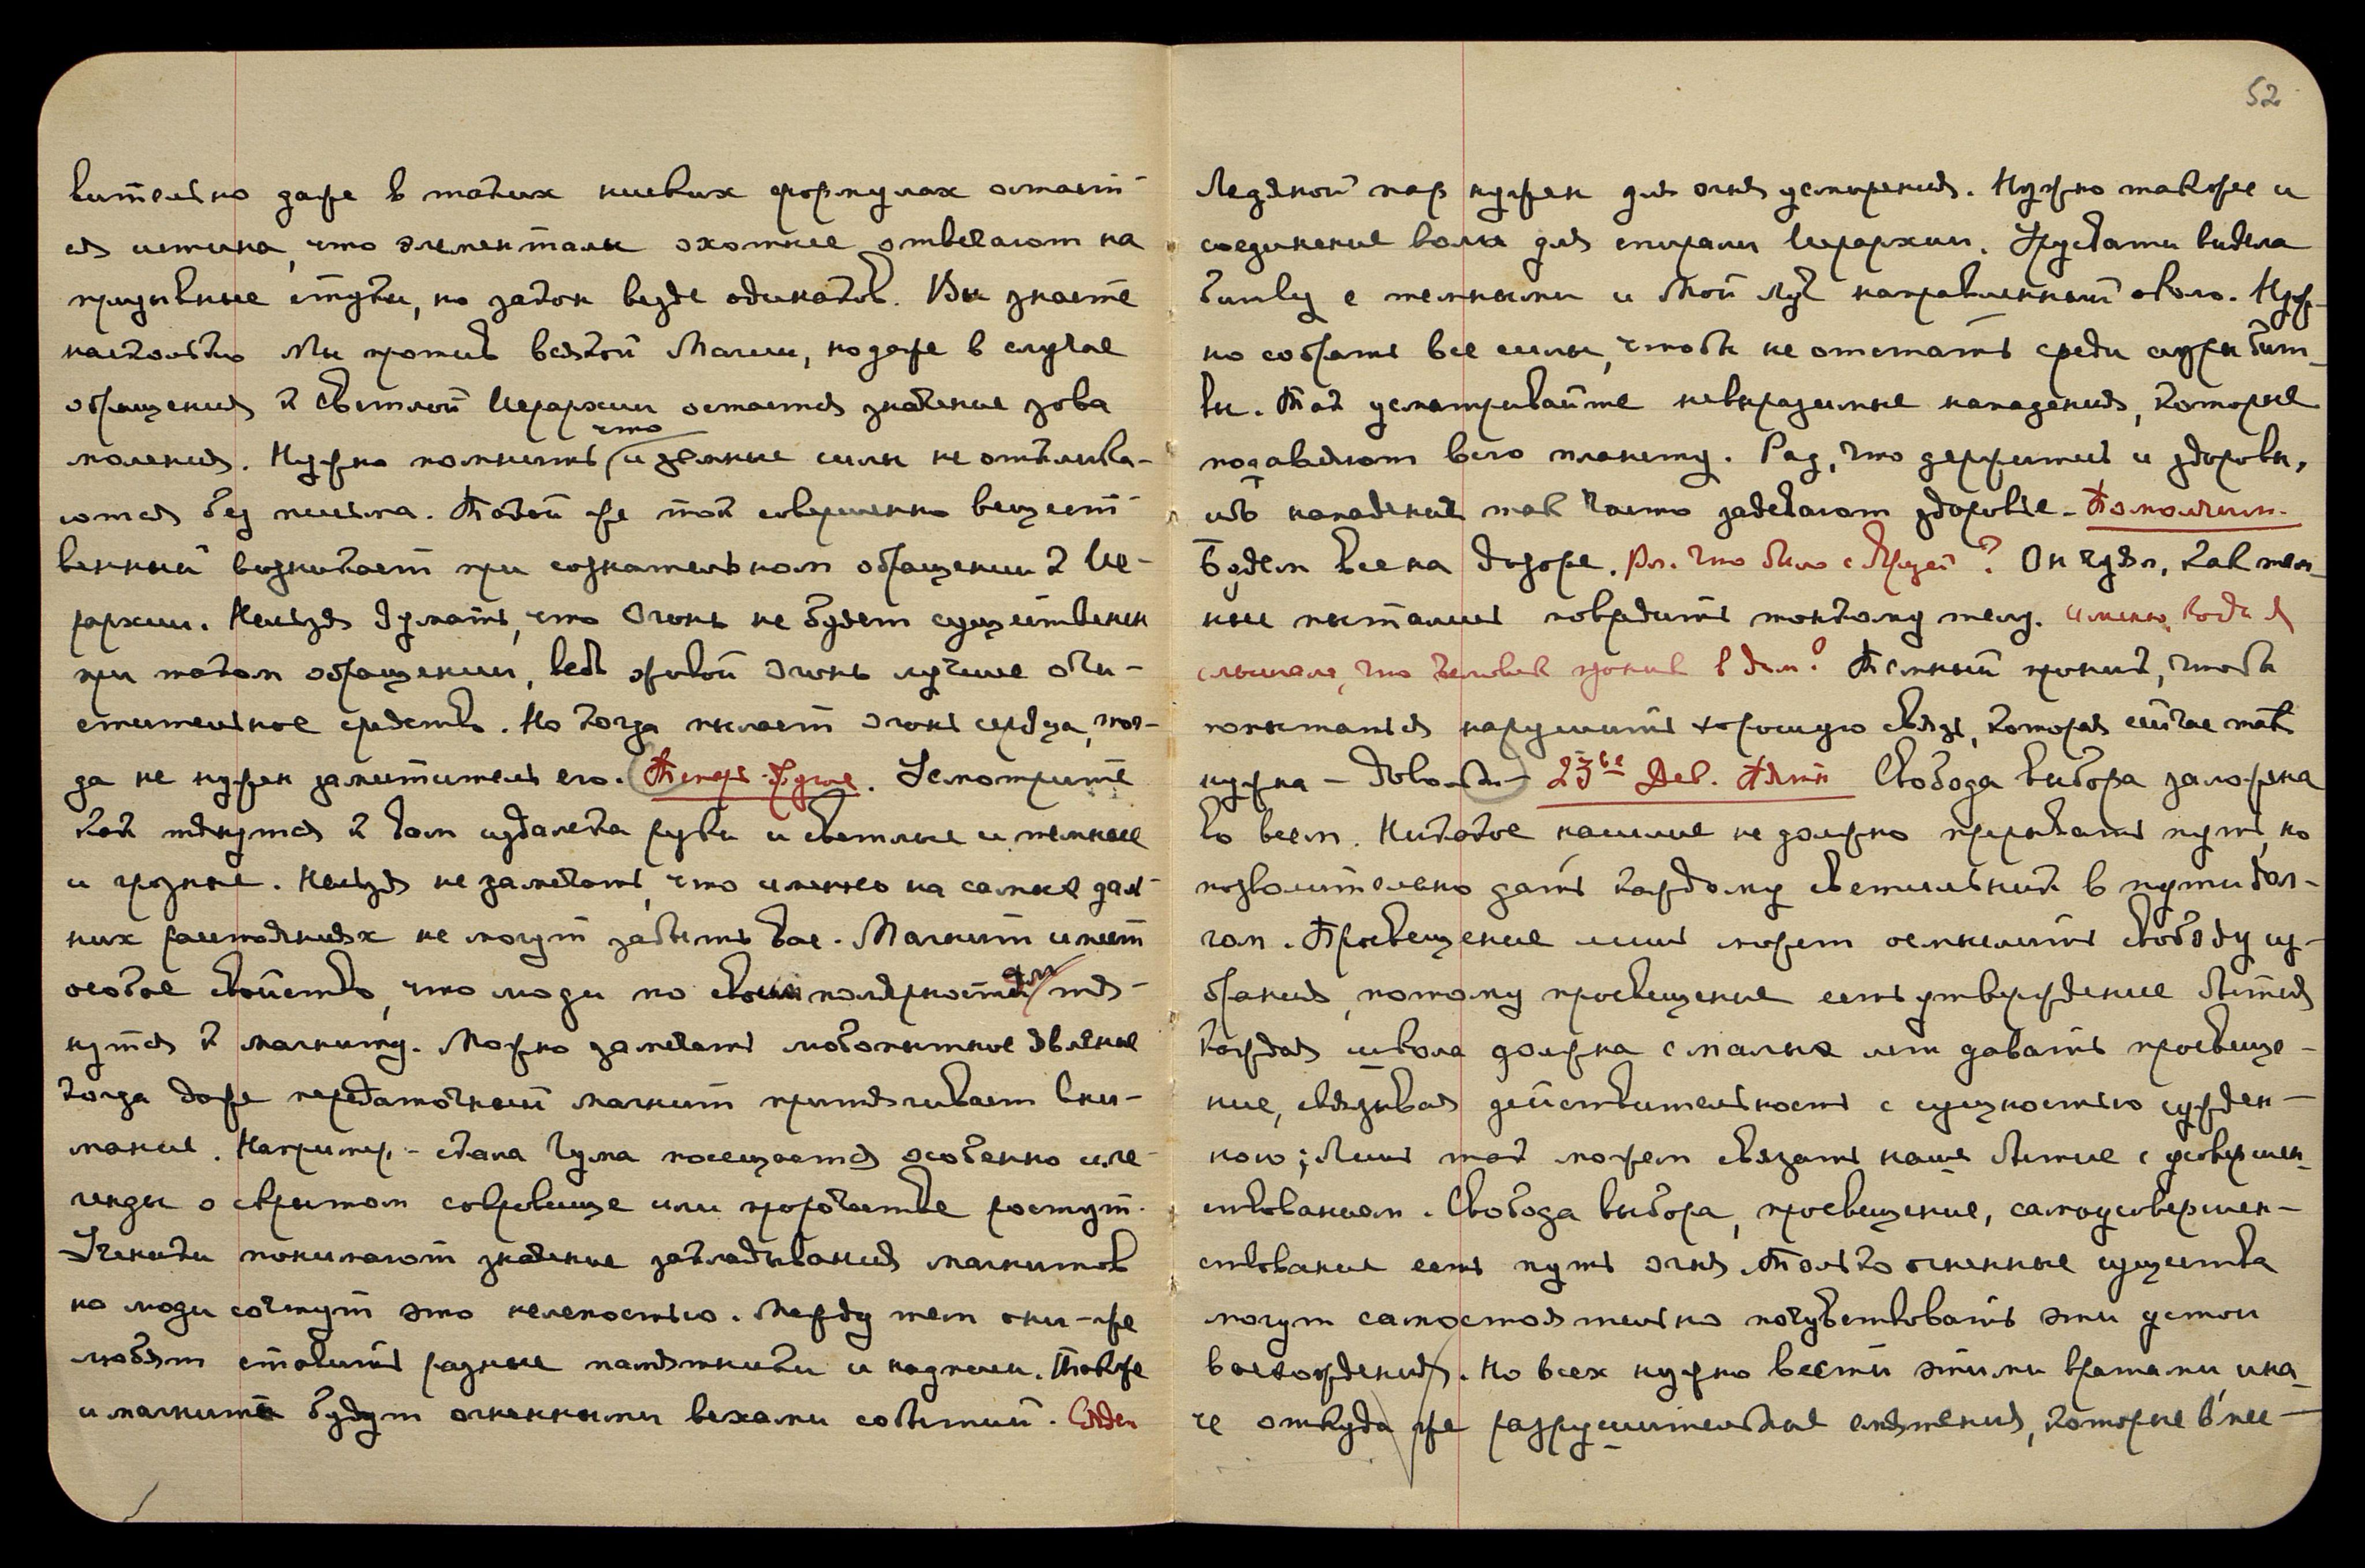 вительно даже в таких низких формулах остает-
ся истина, что элементалы охотнее отвечают на
призывные стуки, но закон везде одинаков. Вы знаете
насколько Мы против всякой Магии, но даже в случае
обращения к Светлой Иерархии остается значение зова
моления. Нужно помнить, что и земные силы не откликa-
ются без письма. Такой же ток совершенно вещест-
венный возникает при сознательном обращении к Ие-
рархии. Нельзя думать, что Огонь не будет существенен
при таком обращении, ведь живой Огонь лучшее очи-
стительное средство. Но когда пылает Огонь сердца, тог-
да не нужен заместитель его. Теперь другое. Усмотрите
как тянутся к вам издалека руки и светлые и темные
и грозные. Нельзя не замечать, что именно на самых даль-
них расстояниях не могут забыть вас. Магнит имеет
особое свойство, что люди по своим полярностям тя-
нутся к магниту. Можно замечать любопытное явление
когда даже передаточный магнит притягивает вни-
мание. Например, - скала Гума посещается особенно и ле-
генды о скрытом сокровище или пророчестве растут.
Ученики понимают значение закладывания магнитов
но люди сочтут это нелепостью. Между тем они-же
любят ставить разные памятники и надписи. Также
и магниты будут огненными вехами событий.
52
Ледяной пар нужен для огня усмирения. Нужно также и
соединение волн для спирали Иерархии. Урусвати видела
битву с темными и Мой Луч направленный около. Нуж-
но собрать все силы, чтобы не отстать среди сужен бит-
вы. Так усматривайте невыразимые нападения, которые
подавляют всю планету. Рад, что держитесь и здоровы,
ибо нападения так часто задевают здоровье - Помолчим.
Будем все на дозоре. что было с Яруей? Он чуял, как тем-
ные пытались повредить тонкому телу. именно, когда я
слышала, что человек проник в дом? Темный проник, чтобы
попытаться нарушить хорошую связь, которая сейчас так
нужна - довольно - 23ье Дек. Пятн Свобода выбора заложена
во всем. Никакое насилие не должно прерывать путь, но
позволительно дать каждому светильник в пути дол-
гом. Просвещение лишь может осмыслить свободу из-
брания, потому просвещение есть утверждение бытия
Каждая школа должна с малых лет давать просвеще-
ние, связывая действительность с сущностью сужден-
ною; Лишь так можем связать наше бытие с усовершен-
ствованием. Свобода выбора, просвещение, самоусовершен-
ствование есть путь огня. Только огненные существа
могут самостоятельно почувствовать эти устои
восхождения. Но всех нужно вести этими вратами, ина-
че откуда же разрушительные смятения, которые вме-